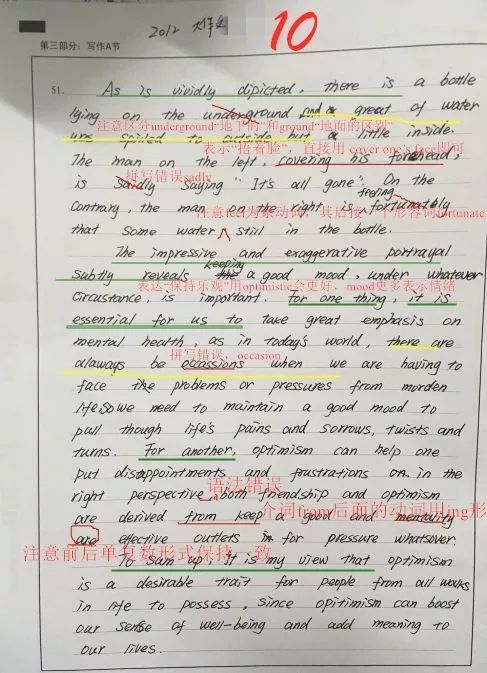 2012 大作文
10
第三部分：写作A节
51. As is vividly dipicted, there is a bottle
lying on the underground and a great of water
注意区分underground“地下的”和ground“地面的区别”
was spilled to outside but a little inside.
表示“捂着脸”，直接用 cover one's face即可
The man on the left, covering his forehead,
拼写错误sadly
is Sardly saying "It's all gone". On the
contrary, the man on the right is feeling fortunately
注意feel为系动词，其后接一个形容词fortunate
that some water still in the bottle.
The impressive and exaggerative portrayal
subtly reveals the keeping a good mood, under whatever
表达“保持乐观”用optimistic会更好，mood更多表示情绪
Circustance, is important. For one thing, it is
essential for us to take great emphasis on
mental health, as in today's world, there are
alaways be ocassions when we are having to
拼写错误，occasion
face the problems or pressures from morden
life.So we need to maintain a good mood to
pull though life's pains and sorrows, twists and
turns. For another, optimism can help one
put disappointments and frustrations on in the
语法错误
right perspective, both friendship and optimism
介词from后面的动词用ing形
are derived from keep a good and mentality
are effective outlets in for pressure whatsover.
注意前后单复数形式保持一致
To sam up, it is my view that optimism
is a desirable trait for people from all walks
in life to possess, since opitimism can boost
our sense of well-being and add meaning to
our lives.